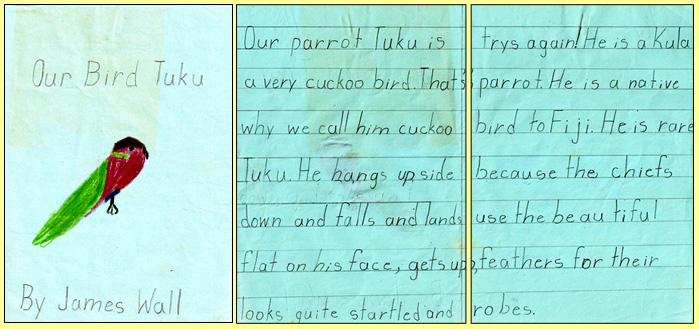 Our Bird Tuku
By James Wall
Our parrot Tuku is
a very cuckoo bird. That's
why we call him cuckoo
Tuku. He hangs up side
down and falls and lands
flat on his face, gets up,
looks quite startled and
trys again! He is a Kula
parrot. He is a native
bird to Fiji. He is rare
because the chiefs
use the beautiful
feathers for their
robes.